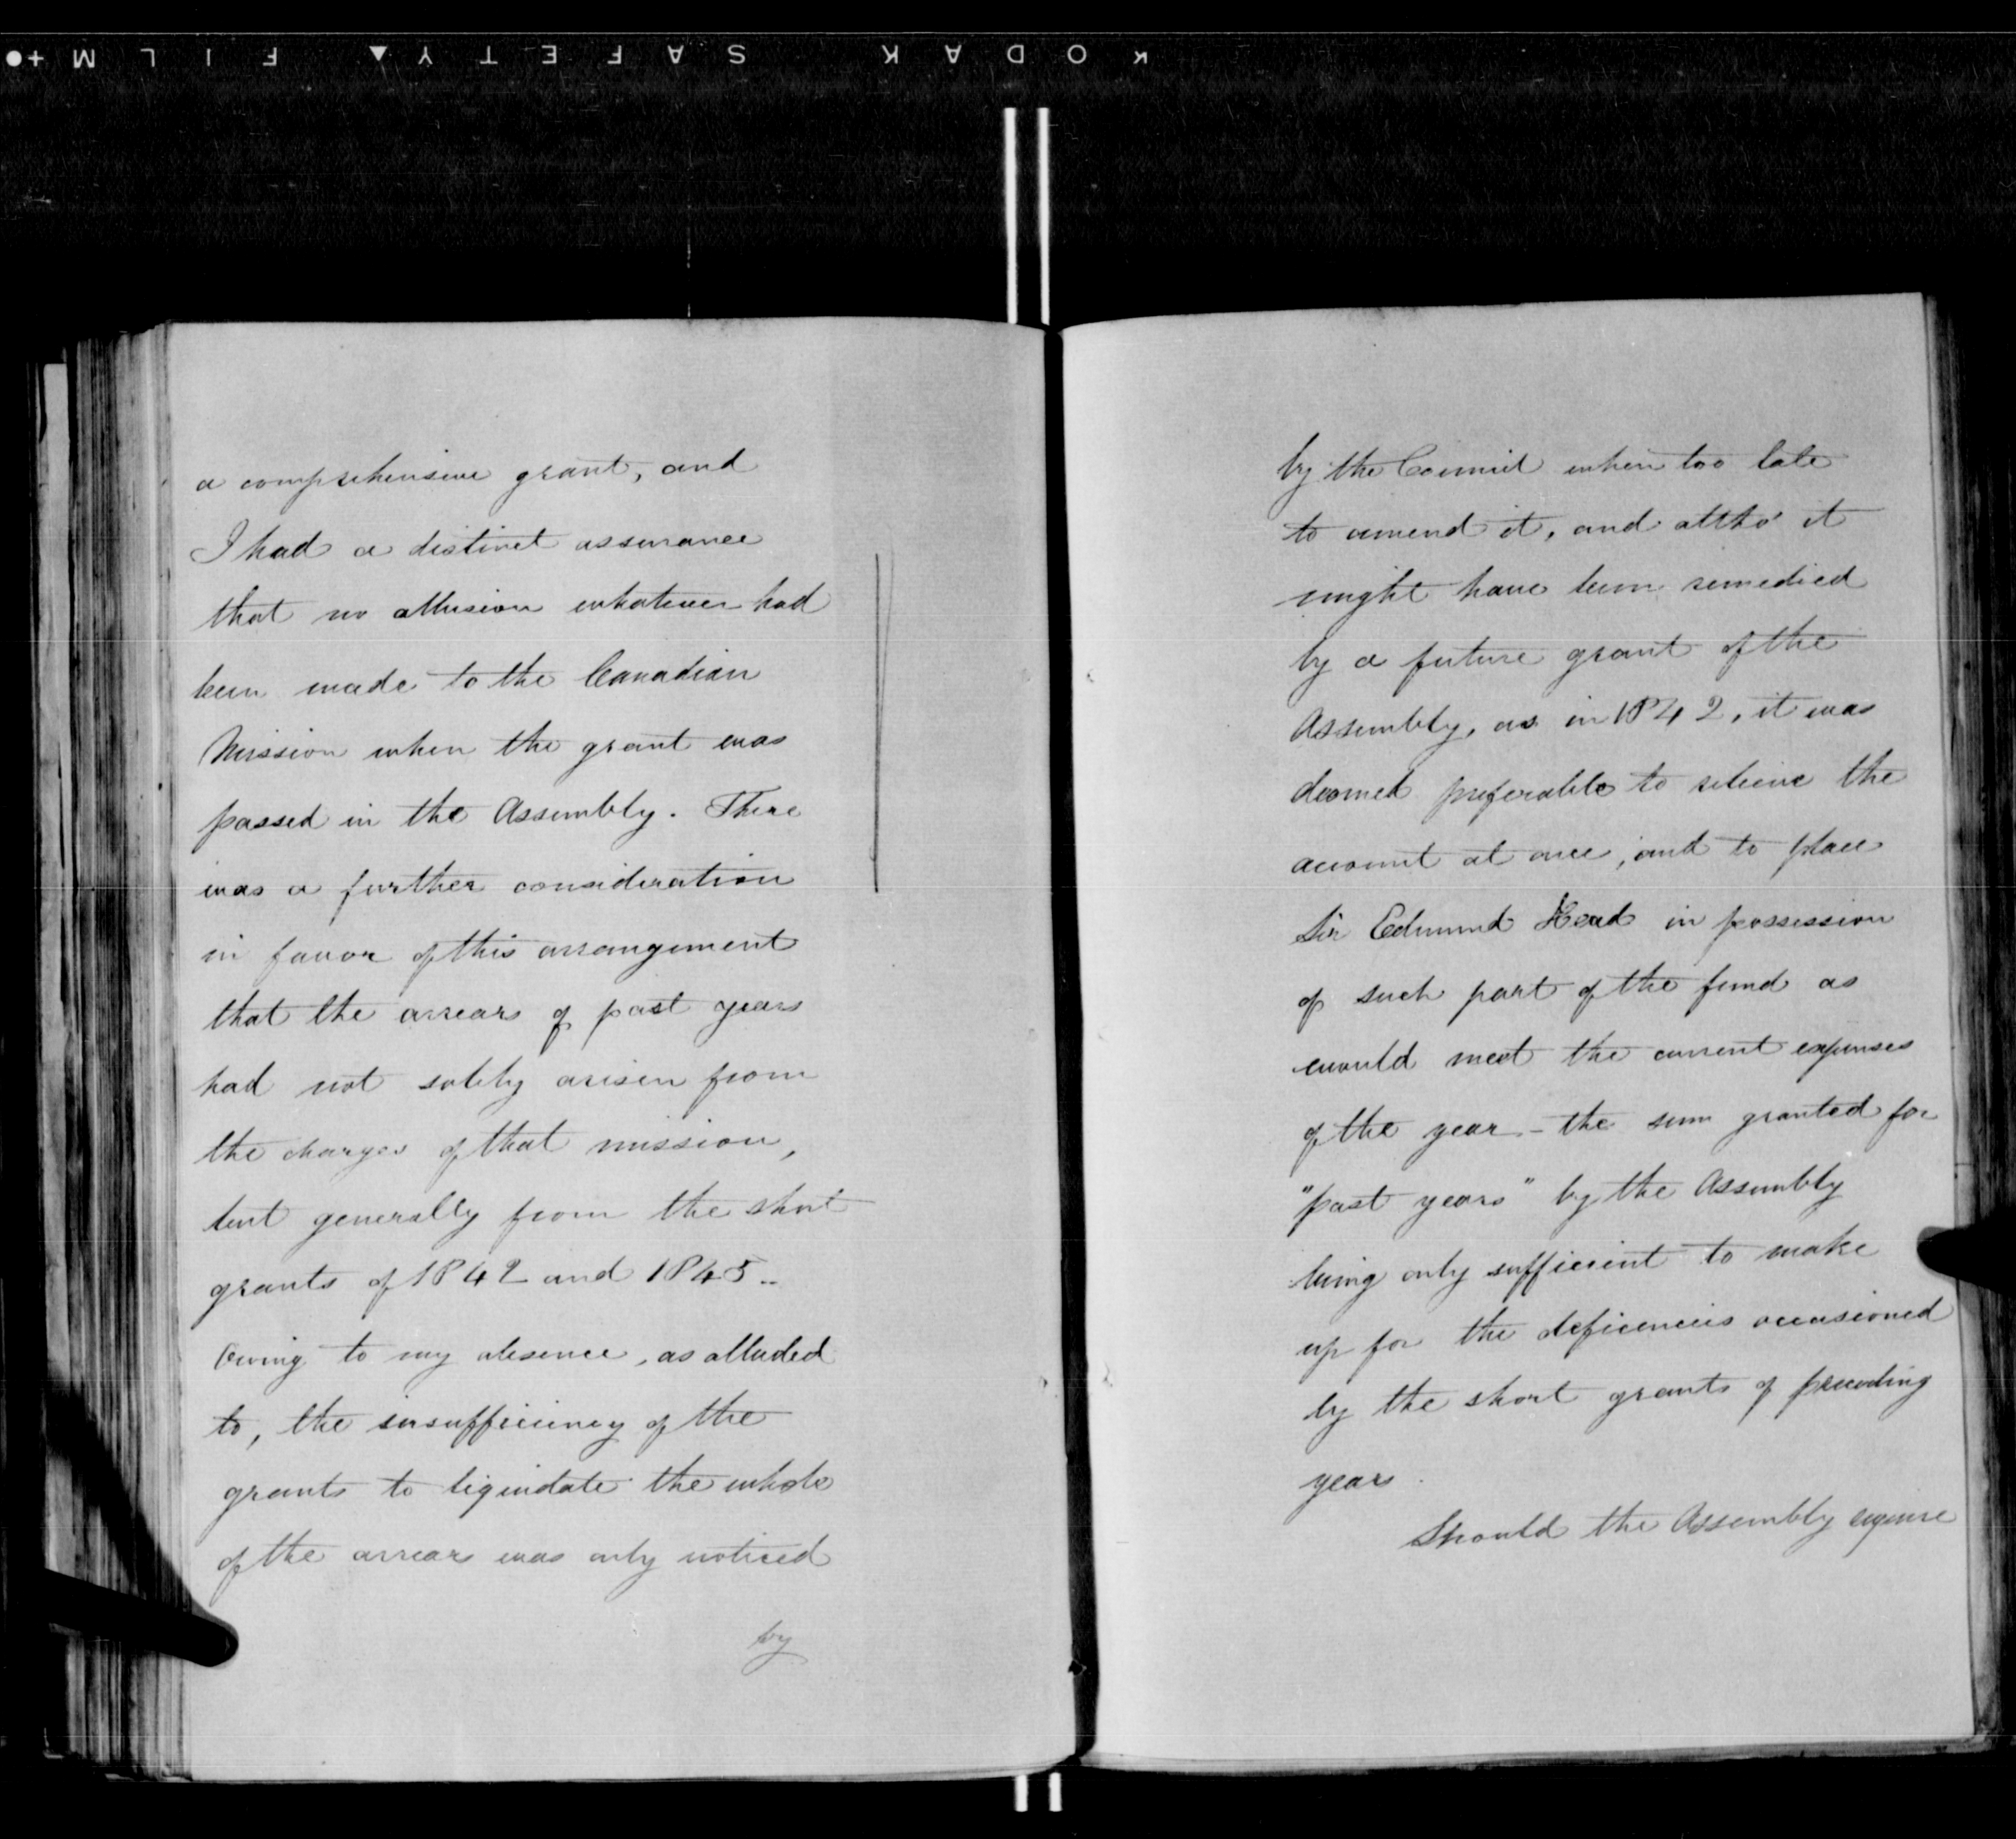 KODAK SAFETY FILM
a comprehensive grant, and
I had a distinct assurance
that no allusion whatever had
been made to the Canadian
Mission when the grant was
passed in the Assembly. There
was a further consideration
in favor of this arrangement
that the arrears of past years
had not solely arisen from
the charges of that mission,
but generally from the short
grants of 1842 and 1845 ..
Owing to my absence, as alluded
to, the insufficiency of the
grants to liquidate the whole
of the arrears was only noticed
by
by the Council when too late
to amend it, and altho' it
might have been remedied
by a future grant of the
Assembly, as in 1842, it was
deemed preferable to relieve the
account at once, and to place
Sir Edmund Head in possession
of such part of the fund as
would meet the current expenses
of the year – the sum granted for
"past years" by the Assembly
being only sufficient to make
up for the deficiencies occasioned
by the short grants of preceding
years.
Should the Assembly require